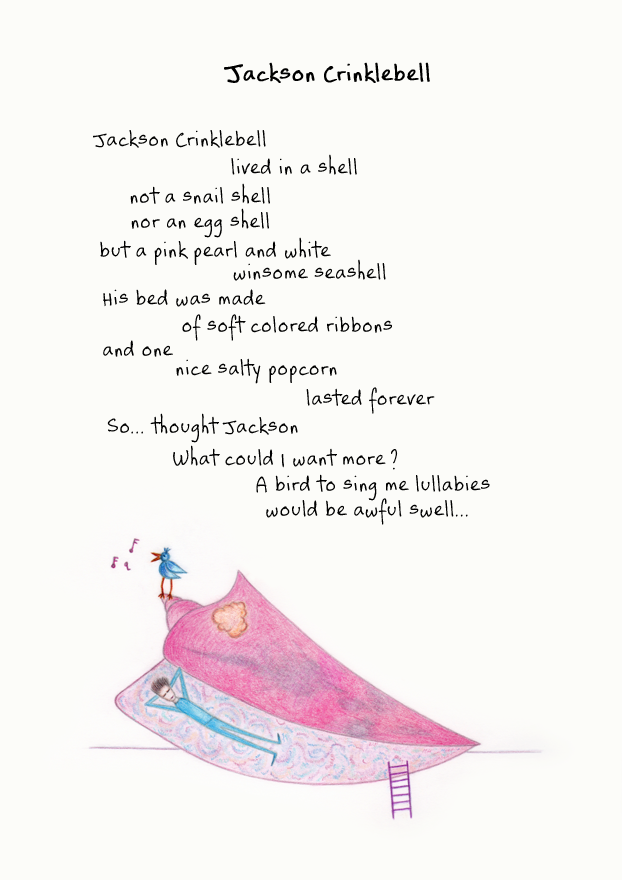 Jackson Crinklebell
Jackson Crinklebell
lived in a shell
not a snail shell
nor an egg shell
but a pink pearl and white
winsome seashell
His bed was made
of soft colored ribbons
and one
nice salty popcorn
lasted forever
So... thought Jackson
What could I want more?
A bird to sing me lullabies
would be awful swell...